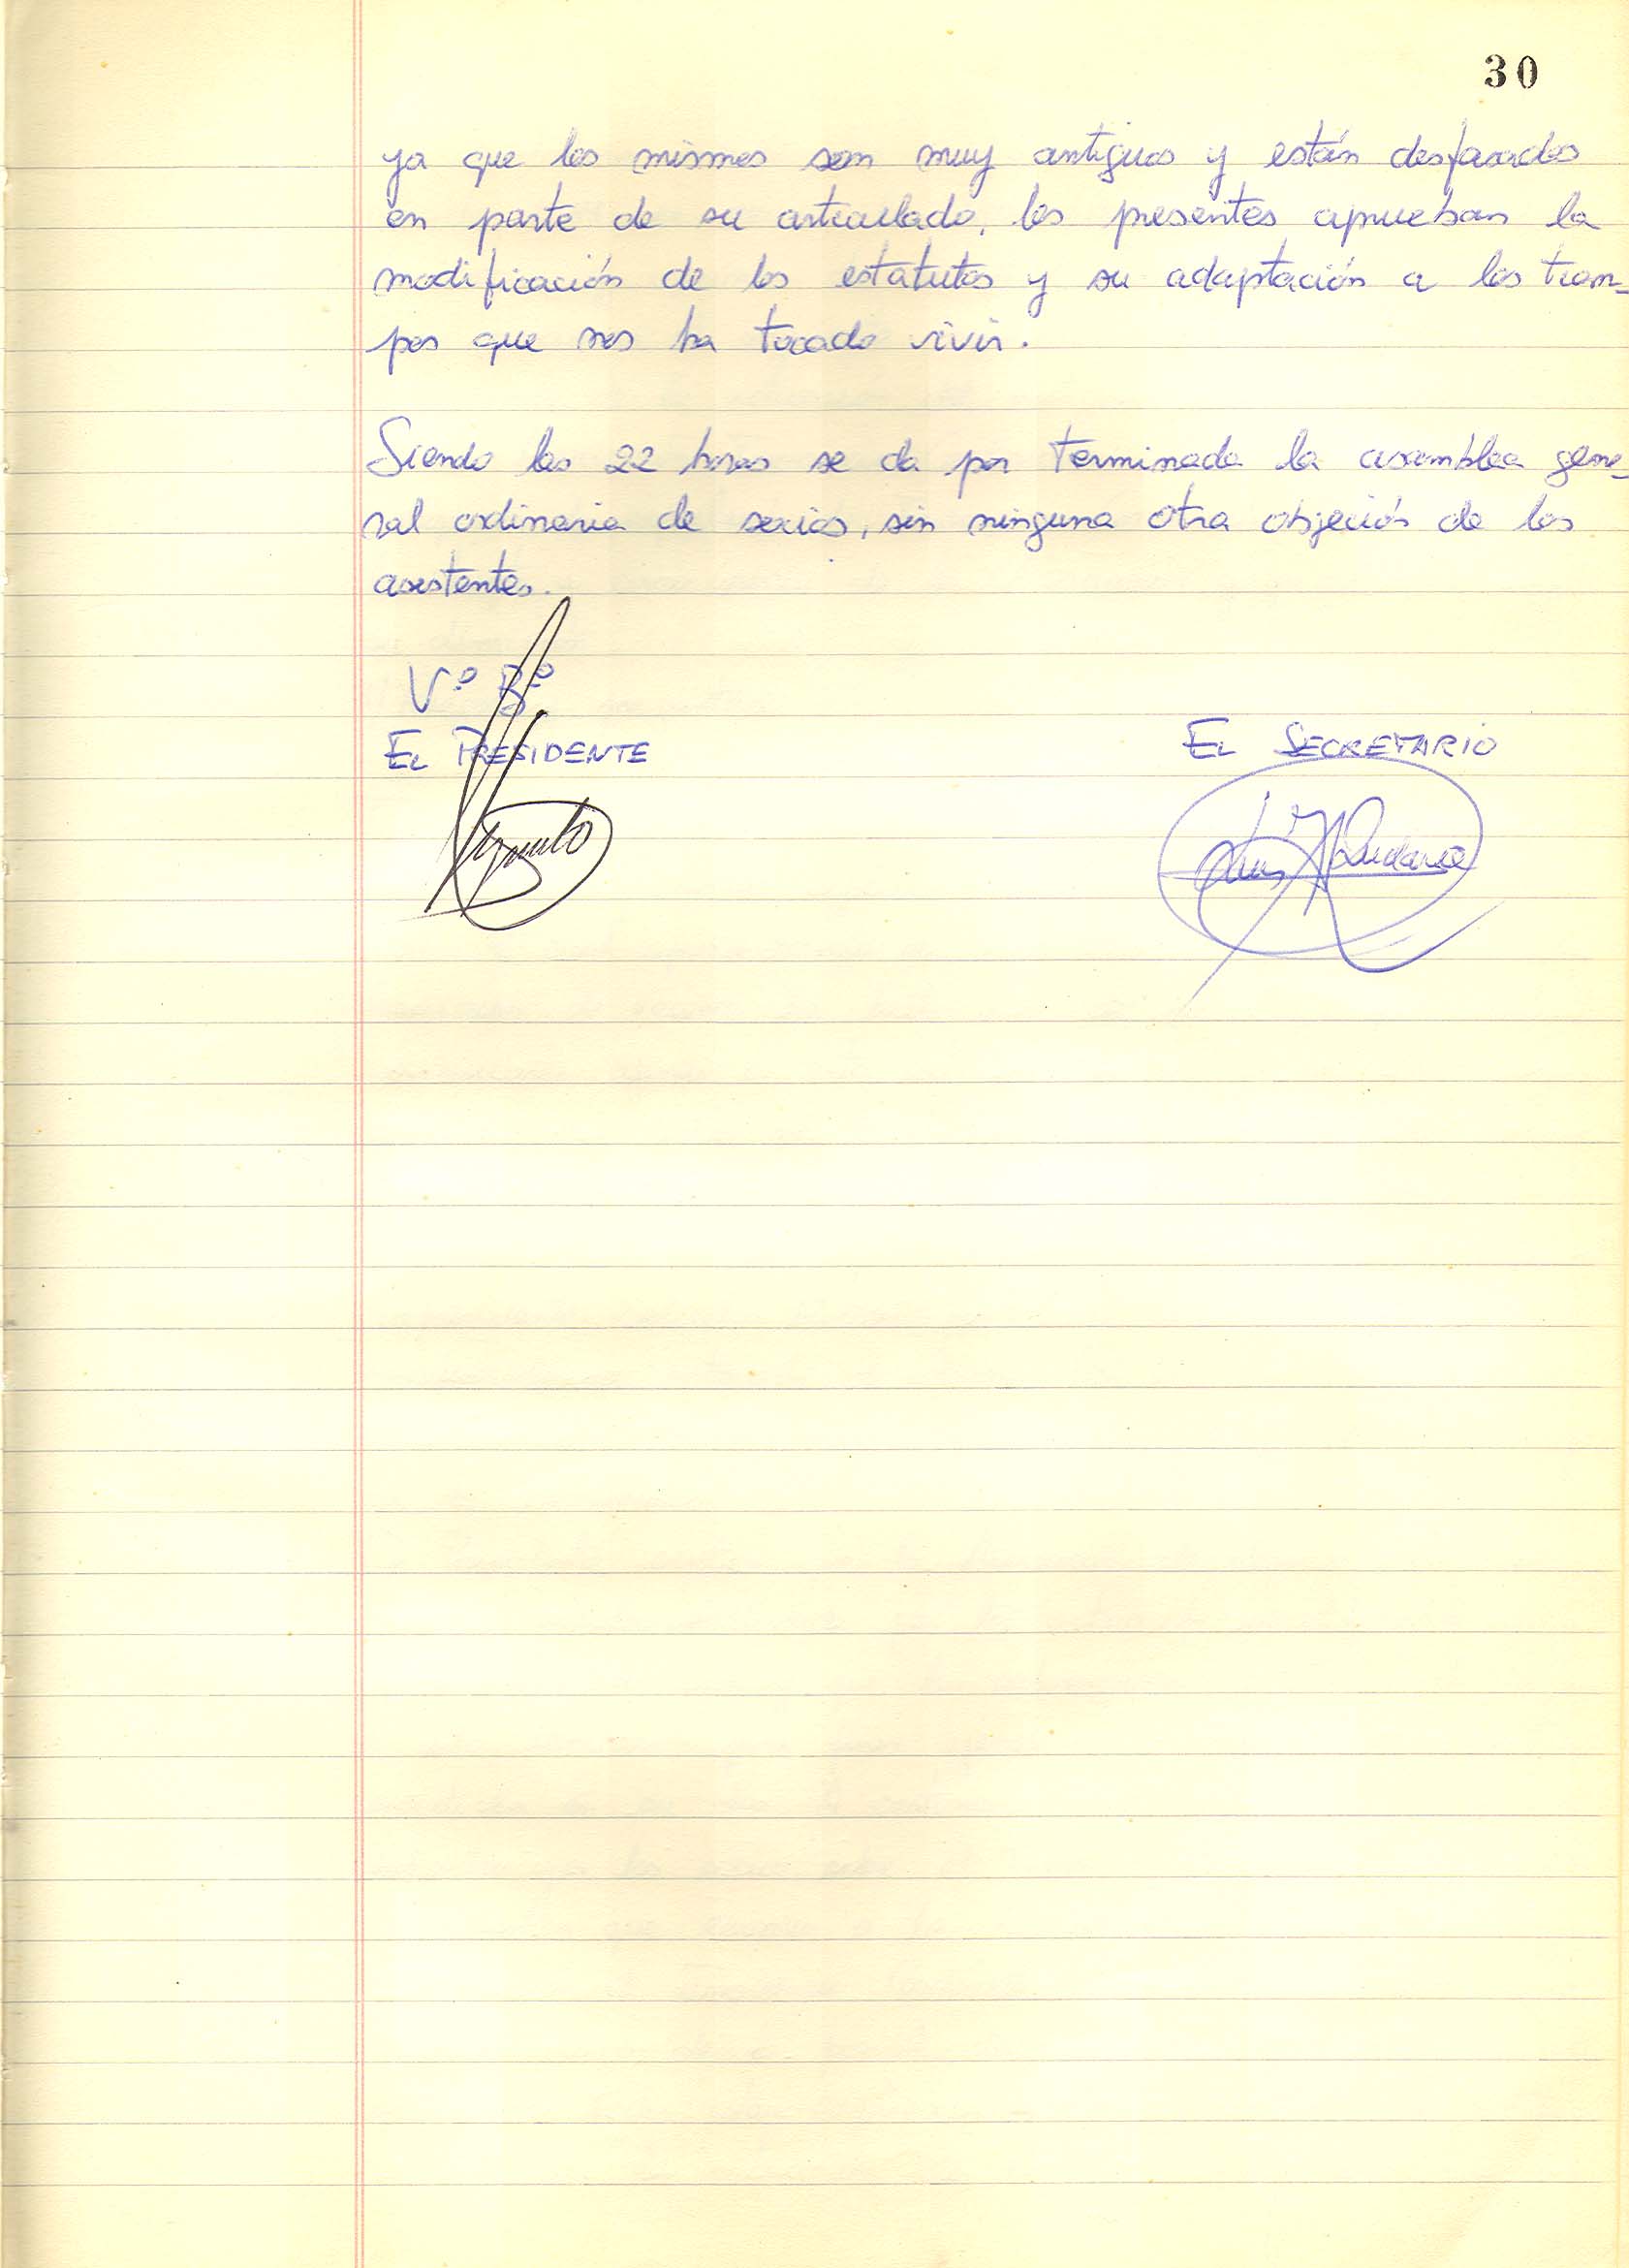 30
ya que los mismos son muy antiguos y están desfasados
en parte de su articulado, los presentes aprueban la
modificación de los estatutos y su adaptación a los tiem-
pos que nos ha tocado vivir.
Siendo las 22 horas se da por terminada la asamblea gene-
ral ordinaria de socios, sin ninguna otra objeción de los
asistentes.
Vº Bº
EL PRESIDENTE
EL SECRETARIO